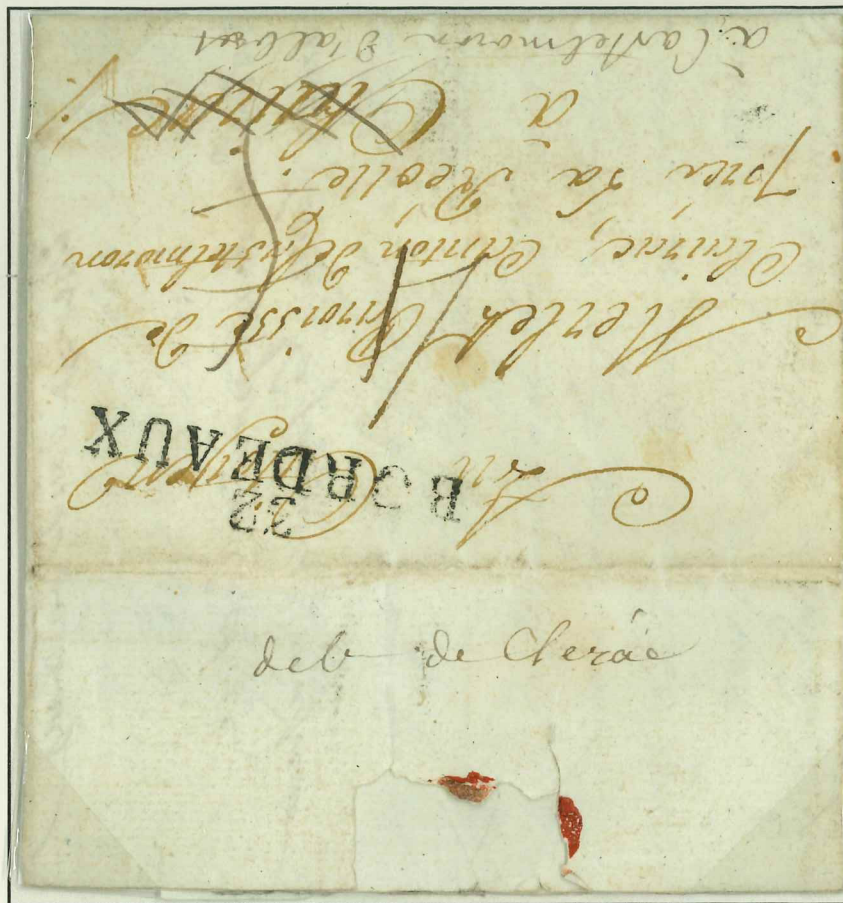 Au Citoyen
32
BORDEAUX
Merlet Parroisse de
Clairac, Canton de Castelmoron
pres La Réolle.
à
à Castelmoron d'albret
deb de Clerác